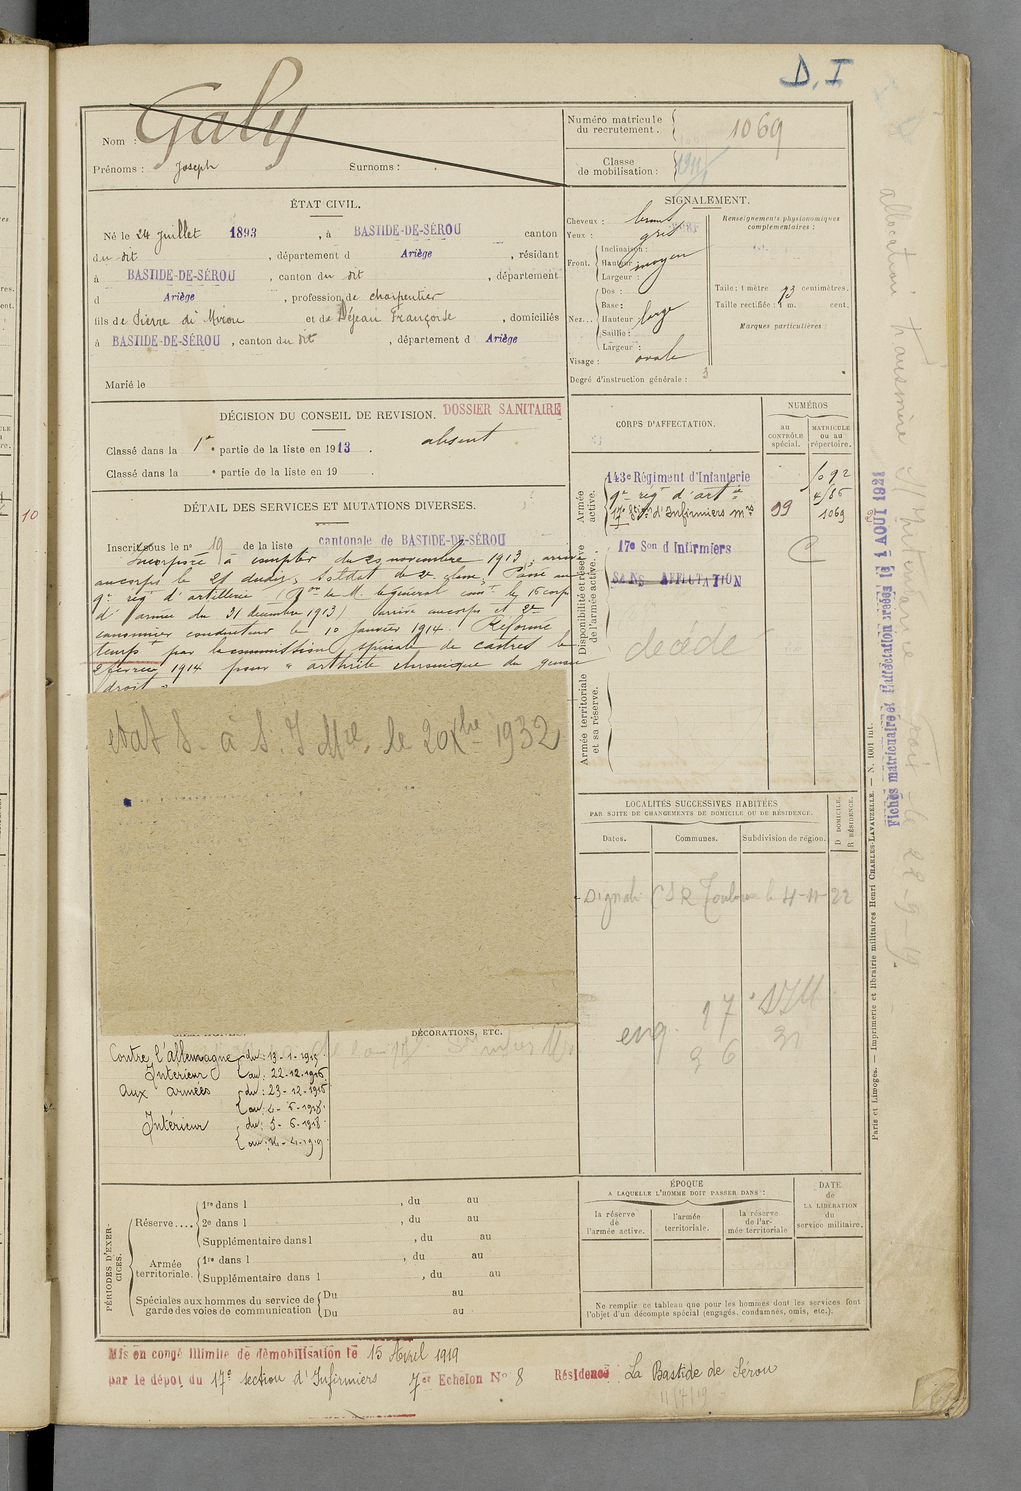 D. I
Nom : Galy
Prénoms : Joseph Surnoms :
Numéro matricule du recutement : 1069
Classe de mobilisation :
ÉTAT CIVIL.
Né le 24 Juillet 1893, à BASTIDE-DE-SÉROU canton
du dit, département d Ariège, résidant
à BASTIDE-DE-SÉROU, canton du dit, département
d Ariège, profession de charpentier
fils de Pierre et de Déjean Françoise, domiciliés
à BASTIDE-DE-SÉROU, canton du dit, département d Ariège
Marié le
SIGNALEMENT.
Cheveux : bruns
Yeux : gris
Front. Inclinaison :
Hauteur : moyen
Largeur :
Nez... Dos :
Base :
Hauteur : large
Saillie :
Largeur :
Visage : ovale
Degré d'instruction générale : 3
Renseignements physionomiques complémentaires :
Taille : 1 mètre 73 centimètres.
Taille rectifiée : 1 m. cent.
Marques particulières :
DÉCISION DU CONSEIL DE REVISION. DOSSIER SANITAIRE
Classé dans la 1re partie de la liste en 1913. absent
Classé dans la e partie de la liste en 19 .
DÉTAIL DES SERVICES ET MUTATIONS DIVERSES.
Inscrit sous le n° 19 de la liste cantonale de BASTIDE-DE-SÉROU
Incorporé à compter du 29 novembre 1913, arrivé
au corps le 21 dudit, Soldat de 2e classe, Passé au
9e rég d'artillerie le général com. le 16 corps
d'armée du 31 décembre 1913) arrivé au corps et 2e
canonnier conducteur le 10 Janvier 1914. Réformé
temp par la commission spéciale de castres le
2 février 1914 pour "arthrite chronique du genou
droit"
etat S. à S. I Mre. le 20 Xbre 1932
DÉCORATIONS, ETC.
Contre l'Allemagne
Intérieur au : 22-12-1916
Aux armées du : 23-12-1916
au : 4-6-1918.
Intérieur du : 5-6-1918
CORPS D'AFFECTATION.
NUMÉROS
au CONTRÔLE spécial.
MATRICULE ou au répertoire.
Armée active.
143e Régiment d'Infanterie
9e rég t d'artie
17e Son d'Infirmiers mres 99 1069
Disponibilité et réserve de l'armée active.
17e Son d Infirmiers
SANS AFFECTATION
décédé
Armée territoriale et sa réserve.
LOCALITÉS SUCCESSIVES HABITÉES
PAR SUITE DE CHANGEMENTS DE DOMICILE OU DE RÉSIDENCE.
Dates. Communes. Subdivision de région. D DOMICILE. R RÉSIDENCE.
CSR Toulouse le 4-11-22
17e SIM
ÉPOQUE
A LAQUELLE L'HOMME DOIT PASSER DANS :
la réserve de l'armée active.
l'armée territoriale.
la réserve de l'armée territoriale
DATE de LA LIBÉRATION du service militaire.
Ne remplir ce tableau que pour les hommes dont les services font
l'objet d'un décompte spécial (engagés, condamnés, omis, etc.).
PÉRIODES D'EXERCICES.
Réserve.... 1re dans l , du au
2e dans l , du au
Supplémentaire dans l , du au
Armée territoriale. 1re dans l , du au
Supplémentaire dans l , du au
Spéciales aux hommes du service de garde des voies de communication Du au
Du au
Mis en congé illimité de démobilisation le 15 Avril 1919
par le dépot du 17e section d'Infirmiers 7er Echelon N° 8 Résidence La Bastide de Sérou
11/7/19
Paris et Limoges. — Imprimerie et librairie militaires Henri CHARLES-LAVAUZELLE. — N. 1001 int.
Fiches matriculaire et d'affectation créées le 1 AOUT 1921
10